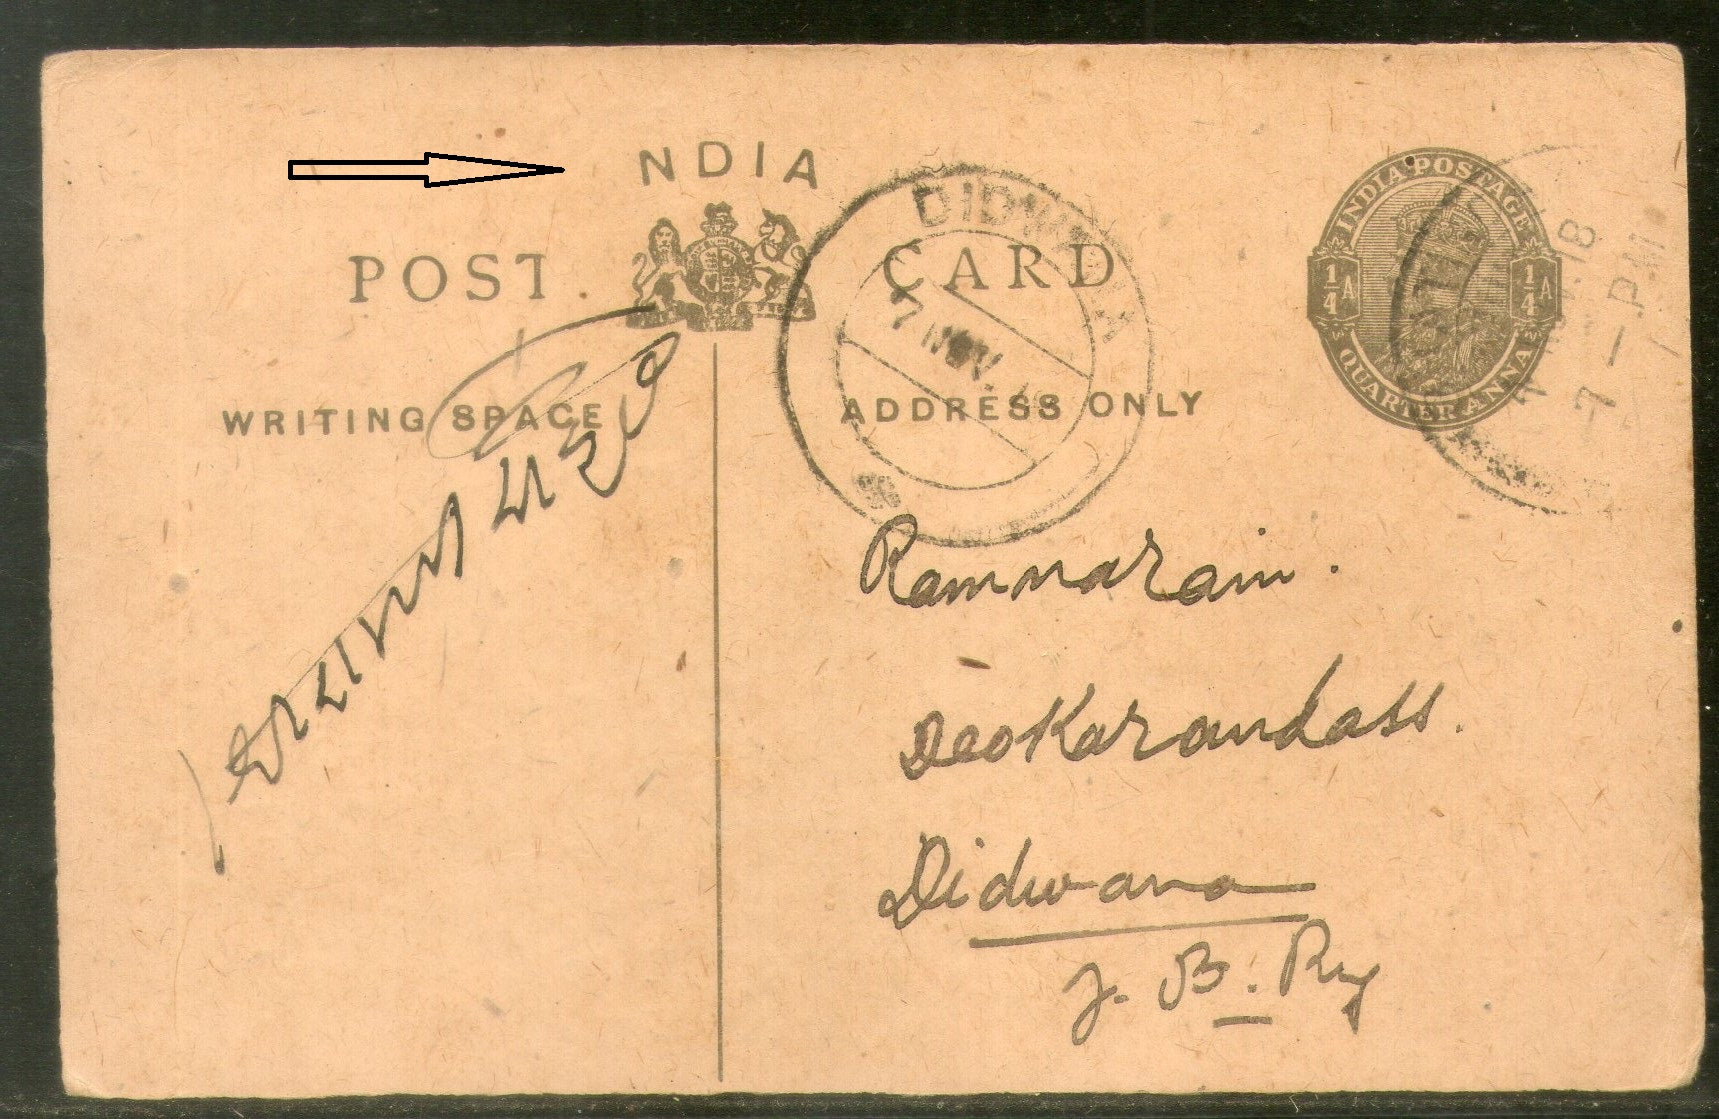 NDIA
POST CARD
WRITING SPACE
ADDRESS ONLY
INDIA POSTAGE
1/4 A 1/4 A
QUARTER ANNA
DIDWANA
7 NOV. 18
NOV. 18
7-PM
Ramnarain.
Deokarandass.
Didwana
J. B. Ry